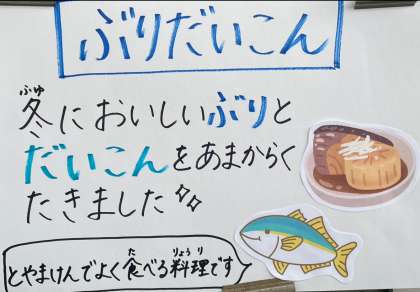 ぶりだいこん
冬においしいぶりと
だいこんをあまからく
たきました
とやまけんでよく食べる料理です